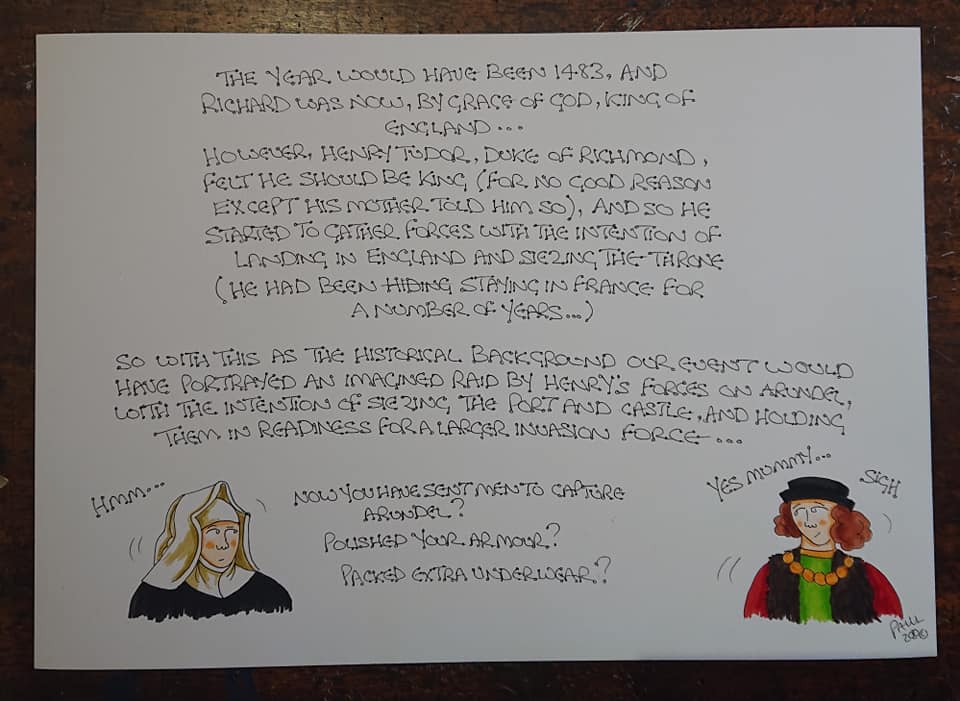 THE YEAR WOULD HAVE BEEN 1483, AND
RICHARD WAS NOW, BY GRACE OF GOD, KING OF
ENGLAND...
HOWEVER, HENRY TUDOR, DUKE OF RICHMOND,
FELT HE SHOULD BE KING (FOR NO GOOD REASON
EXCEPT HIS MOTHER TOLD HIM SO), AND SO HE
STARTED TO GATHER FORCES WITH THE INTENTION OF
LANDING IN ENGLAND AND SIEZING THE THRONE
(HE HAD BEEN HIDING STAYING IN FRANCE FOR
A NUMBER OF YEARS...)
SO WITH THIS AS THE HISTORICAL BACKGROUND OUR EVENT WOULD
HAVE PORTRAYED AN IMAGINED RAID BY HENRY'S FORCES ON ARUNDEL,
WITH THE INTENTION OF SIEZING THE PORT AND CASTLE, AND HOLDING
THEM IN READINESS FOR A LARGER INVASION FORCE...
HMM...
NOW YOU HAVE SENT MEN TO CAPTURE
ARUNDEL?
POLISHED YOUR ARMOUR?
PACKED EXTRA UNDERWEAR?
YES MUMMY...
SIGH
PAUL